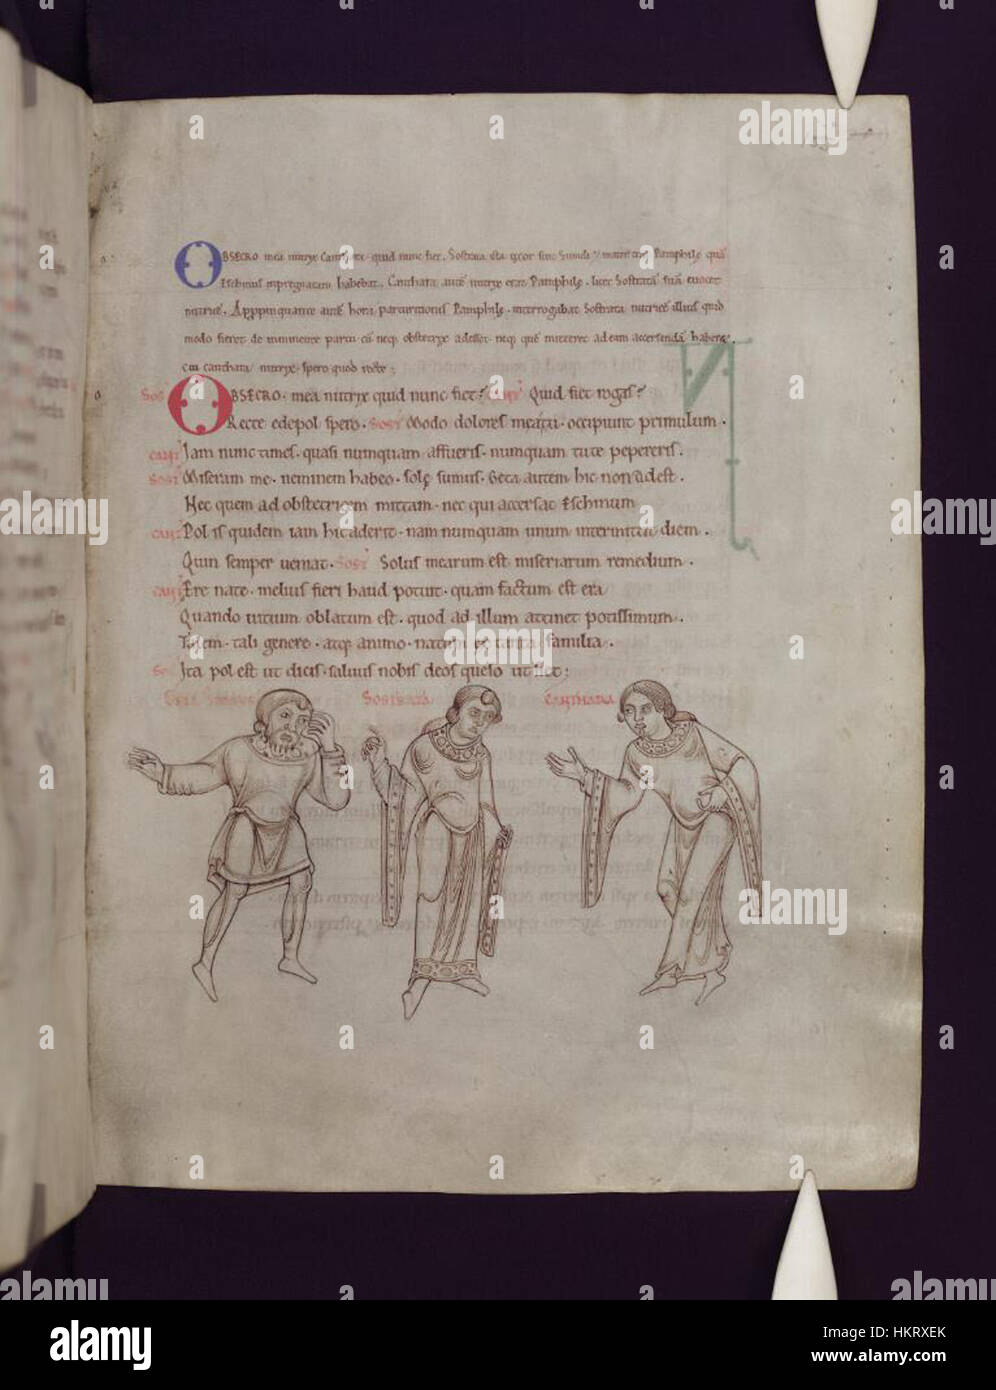 OBSECRO mea nutrix Canthara. quid nunc fiet. Sostrata
Eschinus inpregnatam habebat. Canthara autē nutrix erat Pamphilę. licet Sostrata suā uocet
nutricē. Apppinquante autē hora parturitionis Pamphilę. interrogabat Sostrata nutricē illius quid
modo fieret de imminente partu. cū neq; obstetrix adesset. neq; quē mitteret ad eam accersendā haberet.
cui canthara nutrix. spero quod recte;
SOS OBSECRO. mea nutrix quid nunc fiet? CANT Quid fiet rogas?
Recte edepol spero. SOST Modo dolores mea tu. occipiunt primulum.
CANT Iam nunc times. quasi nunquam affueris. nunquam tute pepereris.
SOST Miseram me. neminem habeo. solę sumus. Geta autem hic non adest.
Nec quem ad obstetricem mittam. nec qui accersat Eschinum
CANT Pol is quidem iam hic aderit. nam nunquam unum intermittit diem.
Quin semper ueniat. SOST Solus mearum est miseriarum remedium.
CANT Ere nate. melius fieri haud potuit. quam factum est era
Quando uitium oblatum est. quod ad illum attinet potissimum.
Talem. tali genere. atq; animo. natum ex tanta familia.
SOS Ita pol est ut dicis. saluus nobis deos queso ut siet;
GETA SERVUS SOSTRATA CANTHARA
a alamy stock photo
HKRXEK
www.alamy.com